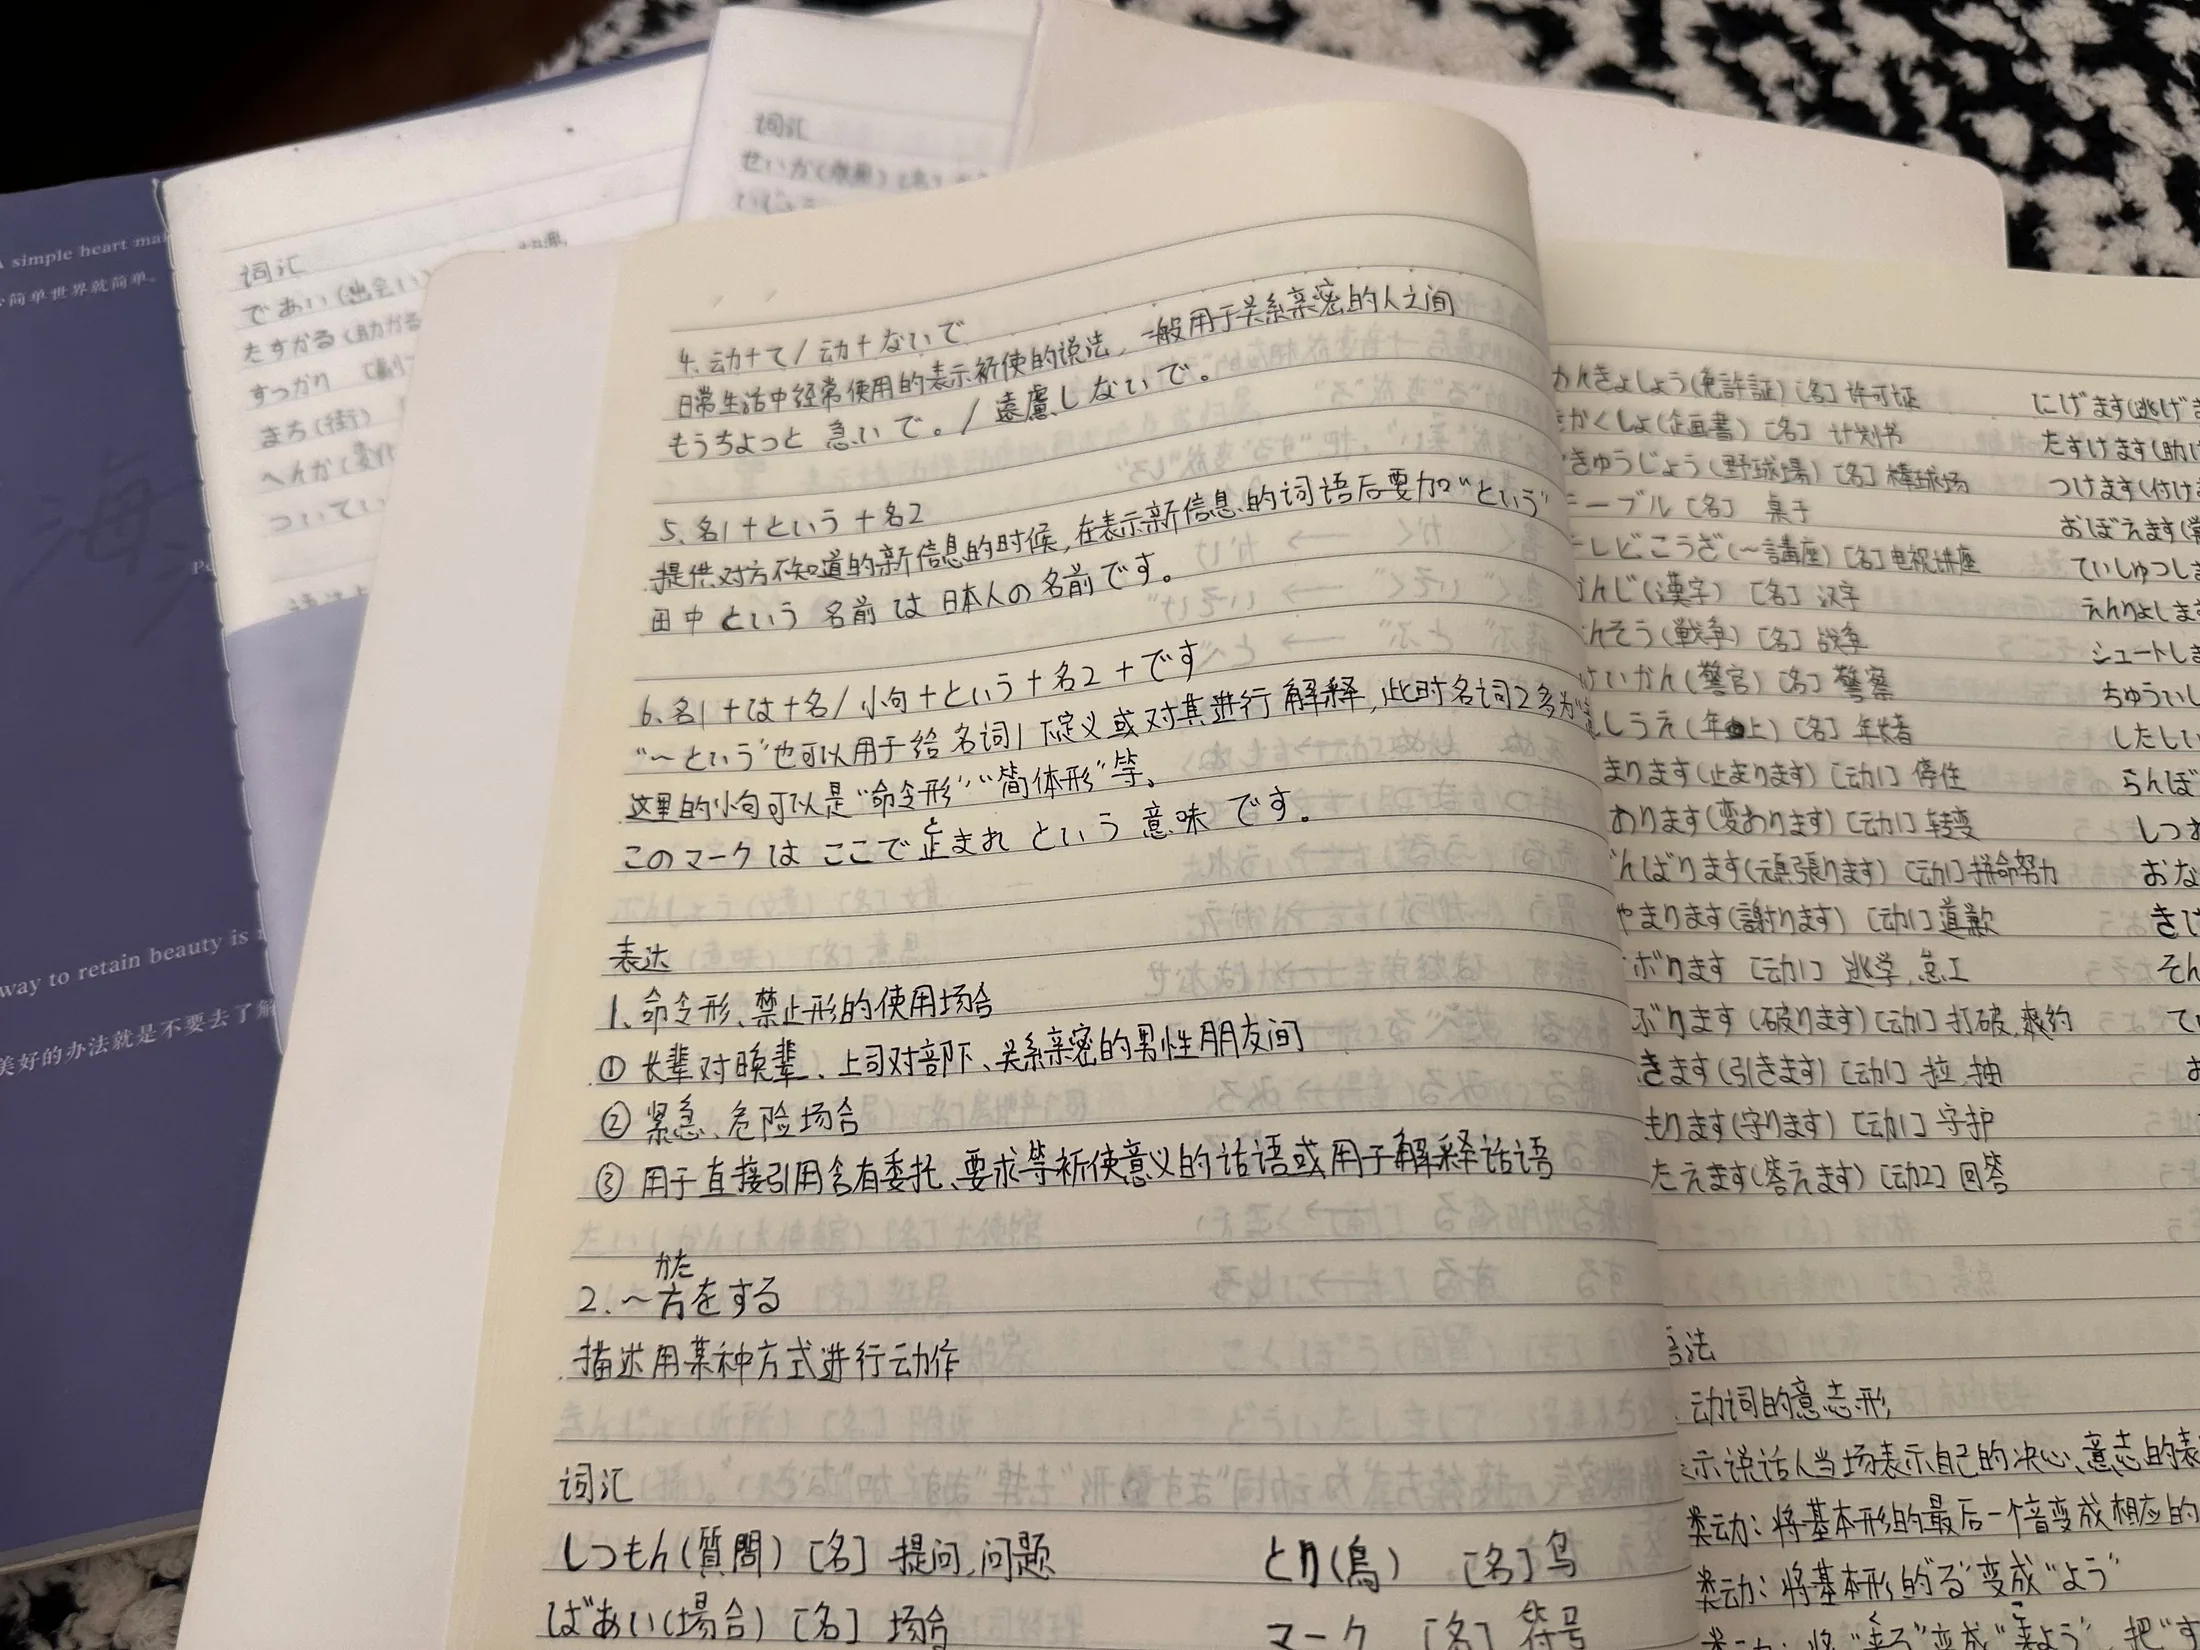 A simple heart
简单世界就简单。
海
way to retain beauty is
美好的办法就是不要去了解
词汇
であい(出会い)
たすかる(助かる
すっかり
まち(街)
へんか(変化
ついてい
词汇
せいか(成果)[名]
4.动+て/动+ないで
日常生活中经常使用的表示祈使的说法，一般用于关系亲密的人之间
もうちょっと 急いで。/遠慮しないで。
5.名1+という+名2
提供对方不知道的新信息的时候,在表示新信息的词语后要加"という"
田中 という 名前 は 日本人の名前です。
6.名1+は+名/小句+という+名2+です
"～という"也可以用于给名词1下定义或对其进行解释,此时名词2多为"
这里的小句可以是"命令形""简体形"等。
と
このマークは ここで 止まれ という 意味 です。
表达
1、命令形、禁止形的使用场合
① 长辈对晚辈、上司对部下、关系亲密的男性朋友间
② 紧急、危险场合
③ 用于直接引用含有委托、要求等祈使意义的话语或用于解释话语
かた
2.～方をする
描述用某种方式进行动作
词汇
しつもん(質問)[名] 提问,问题
とり(鳥) [名]鸟
ばあい(場合)[名] 场合
マーク [名] 符号
んきょしょう(免許証)[名]许可证
かくしょ(企画書)[名] 计划书
きゅうじょう(野球場)[名]棒球场
ーブル[名] 桌子
レビこうざ(～講座)[名]电视讲座
んじ(漢字) [名] 汉字
んそう(戦争)[名] 战争
いかん(警官)[名] 警察
しうえ(年上)[名] 年长者
まります(止まります)[动1] 停住
わります(変わります)[动1]转变
んばります(頑張ります)[动1]拼命努力
やまります(謝ります)[动1]道歉
ボります [动1] 逃学,怠工
ぶります(破ります)[动1]打破,爽约
きます(引きます)[动1] 拉,抽
もります(守ります)[动1]守护
たえます(答えます)[动2]回答
にげます(逃げ
たすけます(助け
つけます(付け
おぼえます(
ていしゅつしま
えんりょしま
シュートしま
ちゅういし
したしい
らんぼ
しつ
おな
きけ
そん
语法
动词的意志形
示说话人当场表示自己的决心、意志的表
类动:将基本形的最后一个音变成相应的
类动:将基本形的"る"变成"よう"
类动:将"来る"变成"来よう" 把"す